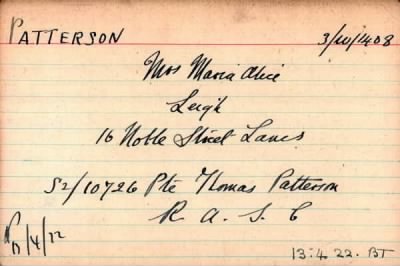 PATTERSON 3/W/1408
Mrs Maria Alice
Leigh
16 Noble Street Lancs
S2/10726 Pte Thomas Patterson
R. A. S. C
/4/22
13.4.22. BT